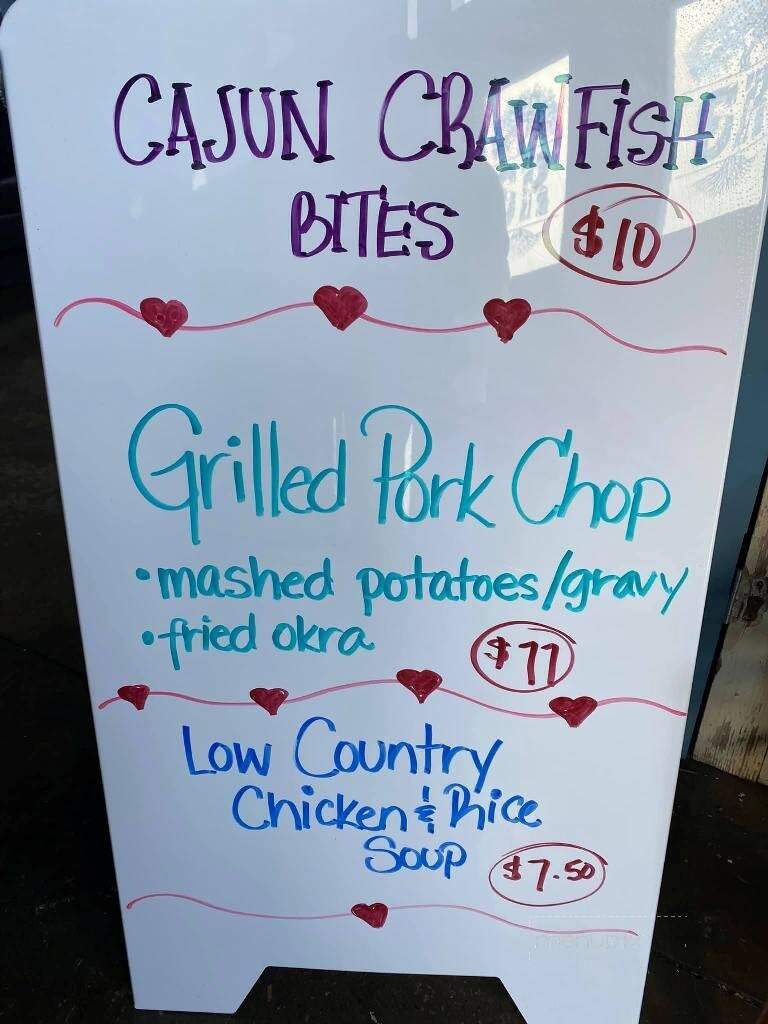 CAJUN CRAWFISH
BITES $10
Grilled Pork Chop
• mashed potatoes/gravy
• fried okra $11
Low Country
Chicken & Rice
Soup $7.50